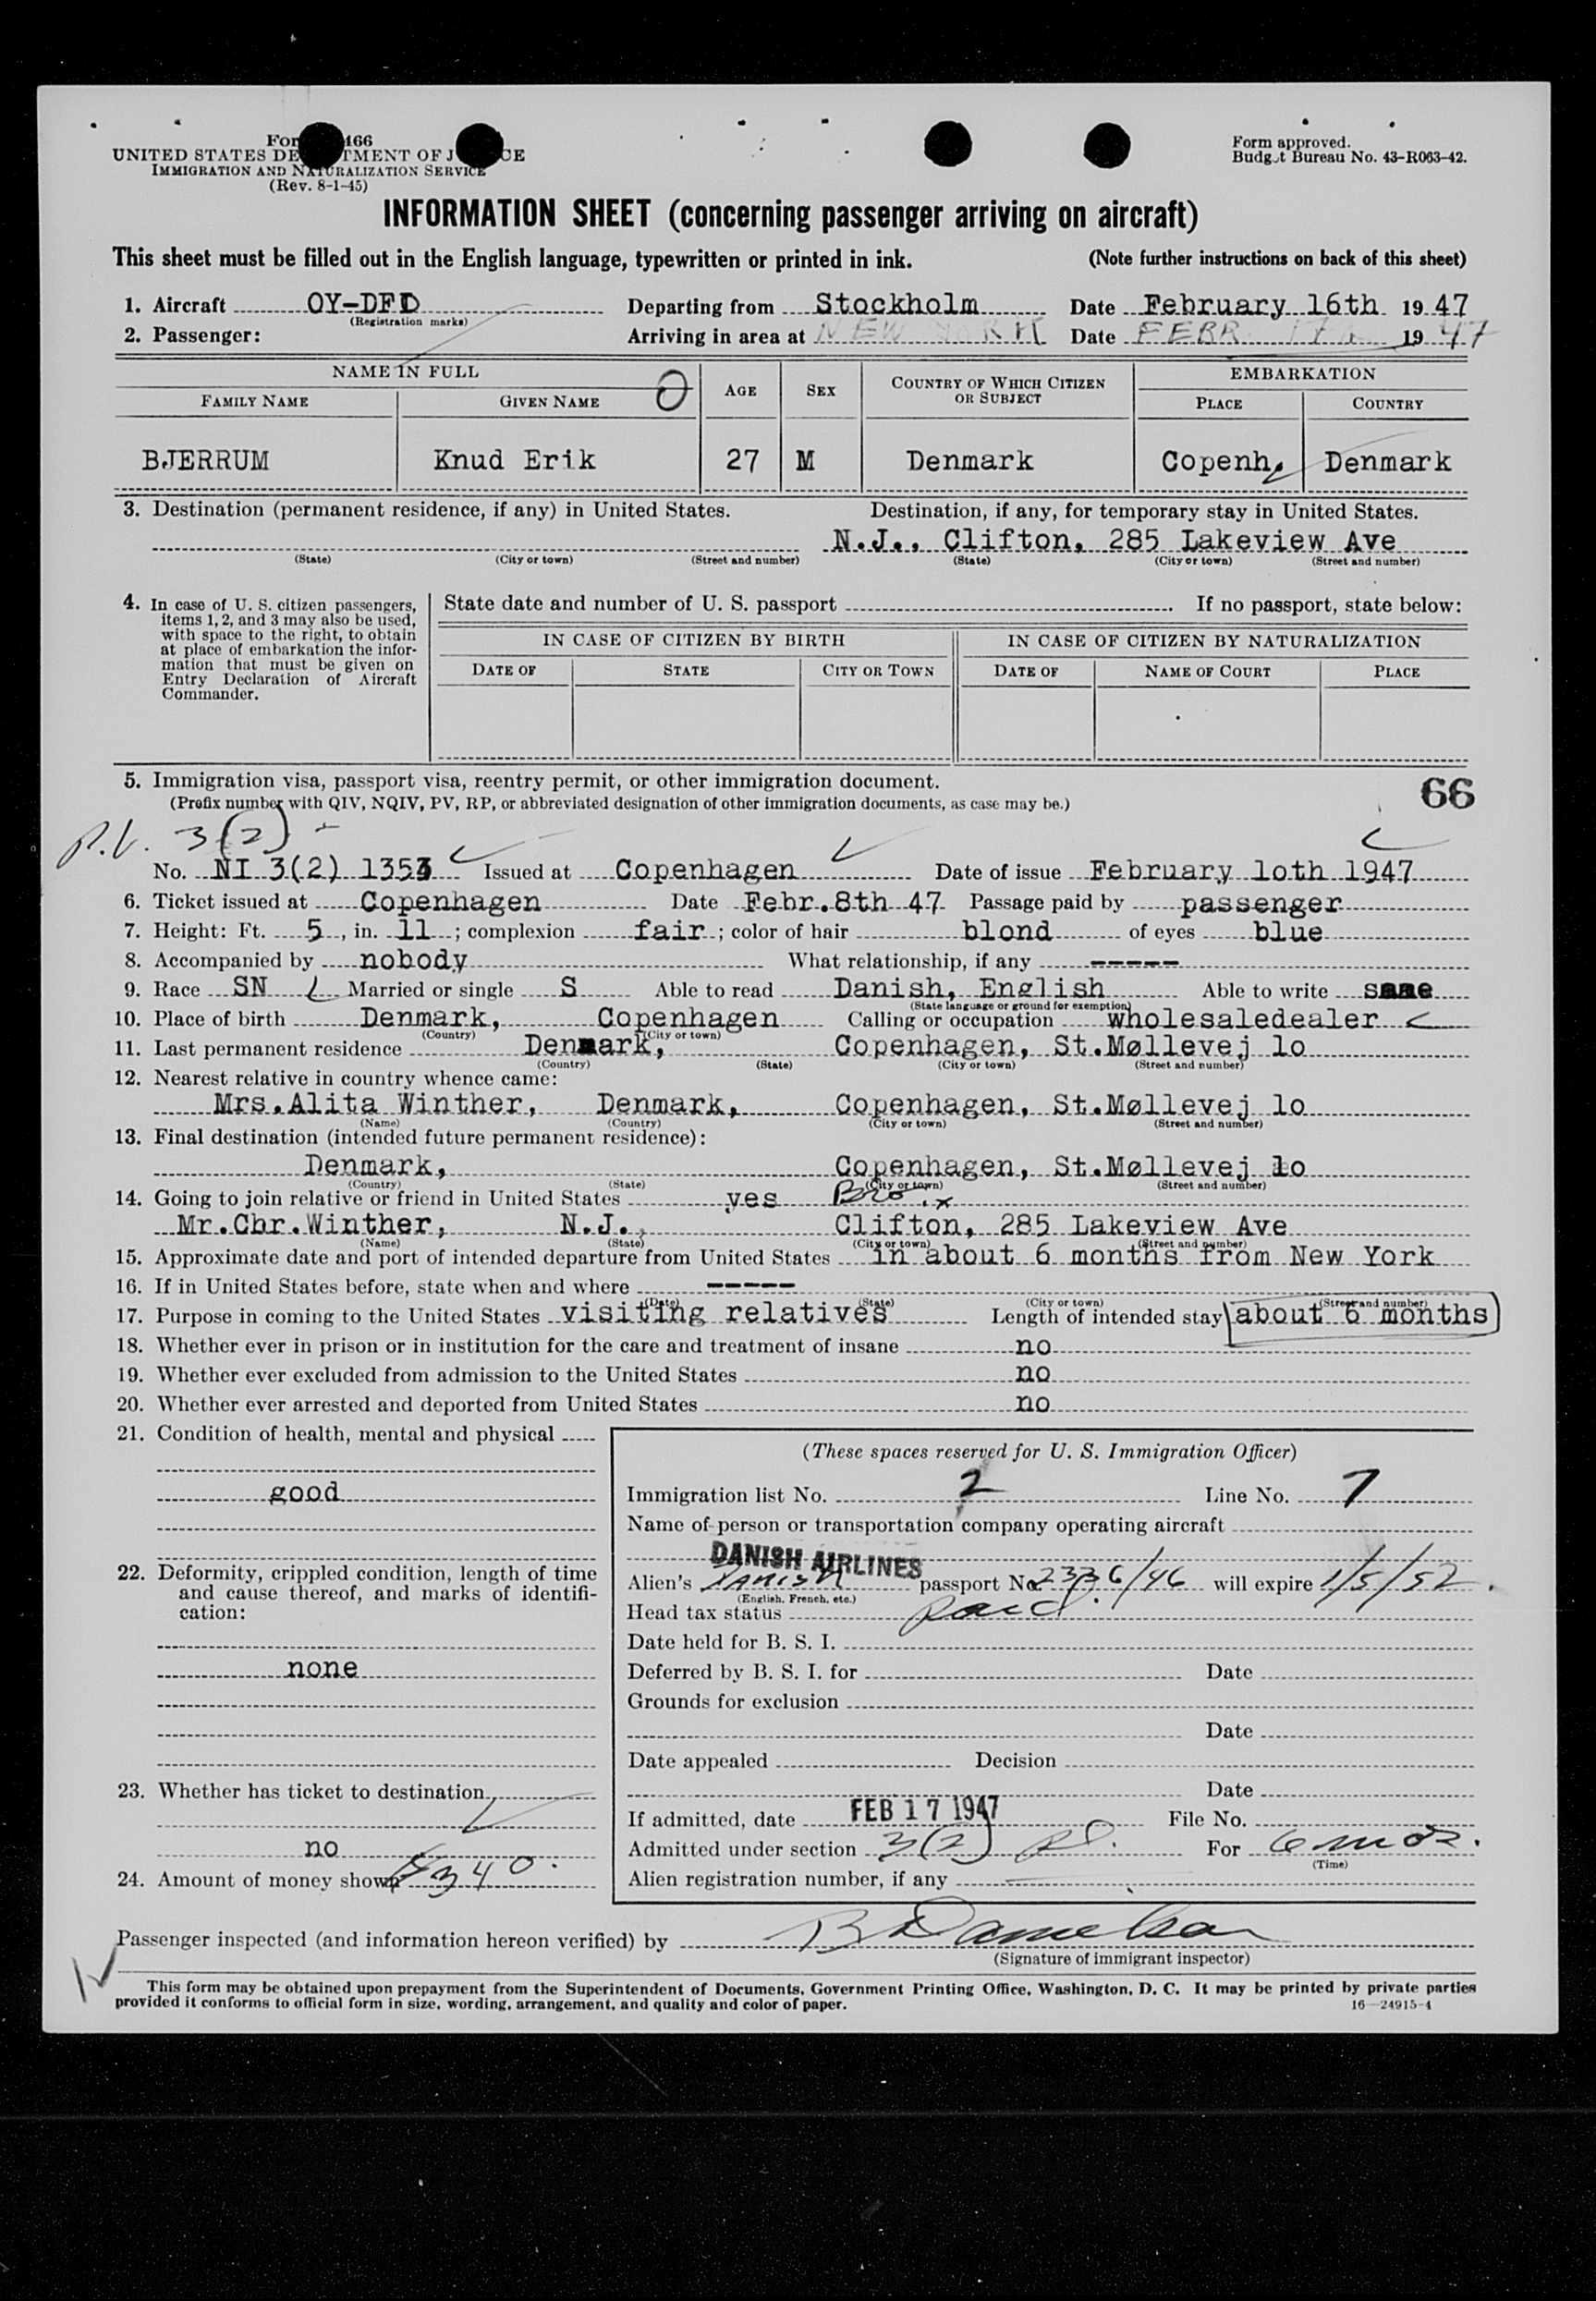 Form 466
UNITED STATES DEPARTMENT OF JUSTICE
IMMIGRATION AND NATURALIZATION SERVICE
(Rev. 8-1-45)
Form approved.
Budget Bureau No. 43-R063-42.
INFORMATION SHEET (concerning passenger arriving on aircraft)
This sheet must be filled out in the English language, typewritten or printed in ink. (Note further instructions on back of this sheet)
1. Aircraft OY-DFD Departing from Stockholm Date February 16th 19 47
(Registration marks)
2. Passenger: Arriving in area at NEW YORK Date FEBR 17th 19 47
NAME IN FULL AGE SEX COUNTRY OF WHICH CITIZEN OR SUBJECT EMBARKATION
FAMILY NAME GIVEN NAME PLACE COUNTRY
BJERRUM Knud Erik 27 M Denmark Copenh. Denmark
3. Destination (permanent residence, if any) in United States. Destination, if any, for temporary stay in United States.
N.J., Clifton, 285 Lakeview Ave
(State) (City or town) (Street and number) (State) (City or town) (Street and number)
4. In case of U. S. citizen passengers, items 1, 2, and 3 may also be used, with space to the right, to obtain at place of embarkation the information that must be given on Entry Declaration of Aircraft Commander.
State date and number of U. S. passport If no passport, state below:
IN CASE OF CITIZEN BY BIRTH IN CASE OF CITIZEN BY NATURALIZATION
DATE OF STATE CITY OR TOWN DATE OF NAME OF COURT PLACE
5. Immigration visa, passport visa, reentry permit, or other immigration document. 66
(Prefix number with QIV, NQIV, PV, RP, or abbreviated designation of other immigration documents, as case may be.)
P.V. 3(2)
No. NI 3(2) 1353 Issued at Copenhagen Date of issue February 1oth 1947
6. Ticket issued at Copenhagen Date Febr.8th 47 Passage paid by passenger
7. Height: Ft. 5, in. 11; complexion fair; color of hair blond of eyes blue
8. Accompanied by nobody What relationship, if any -----
9. Race SN Married or single S Able to read Danish, English Able to write same
(State language or ground for exemption)
10. Place of birth Denmark, Copenhagen Calling or occupation wholesaledealer
(Country) (City or town)
11. Last permanent residence Denmark, Copenhagen, St.Møllevej 1o
(Country) (State) (City or town) (Street and number)
12. Nearest relative in country whence came:
Mrs.Alita Winther, Denmark, Copenhagen, St.Møllevej 1o
(Name) (Country) (City or town) (Street and number)
13. Final destination (intended future permanent residence):
Denmark, Copenhagen, St.Møllevej 1o
(Country) (State) (City or town) (Street and number)
14. Going to join relative or friend in United States yes Bro. x
Mr.Chr.Winther, N.J., Clifton, 285 Lakeview Ave
(Name) (State) (City or town) (Street and number)
15. Approximate date and port of intended departure from United States in about 6 months from New York
16. If in United States before, state when and where -----
(Date) (State) (City or town) (Street and number)
17. Purpose in coming to the United States visiting relatives Length of intended stay about 6 months
18. Whether ever in prison or in institution for the care and treatment of insane no
19. Whether ever excluded from admission to the United States no
20. Whether ever arrested and deported from United States no
21. Condition of health, mental and physical
good
22. Deformity, crippled condition, length of time and cause thereof, and marks of identification:
none
23. Whether has ticket to destination
no
24. Amount of money shown $340.
(These spaces reserved for U. S. Immigration Officer)
Immigration list No. 2 Line No. 7
Name of person or transportation company operating aircraft
DANISH AIRLINES
Alien's Danish passport No. 2336/46 will expire 1/5/52.
(English, French, etc.)
Head tax status Paid.
Date held for B. S. I.
Deferred by B. S. I. for Date
Grounds for exclusion
Date
Date appealed Decision
Date
If admitted, date FEB 17 1947 File No.
Admitted under section 3(2) For 6 mos.
(Time)
Alien registration number, if any
Passenger inspected (and information hereon verified) by
(Signature of immigrant inspector)
This form may be obtained upon prepayment from the Superintendent of Documents, Government Printing Office, Washington, D. C. It may be printed by private parties
provided it conforms to official form in size, wording, arrangement, and quality and color of paper. 16—24915-4